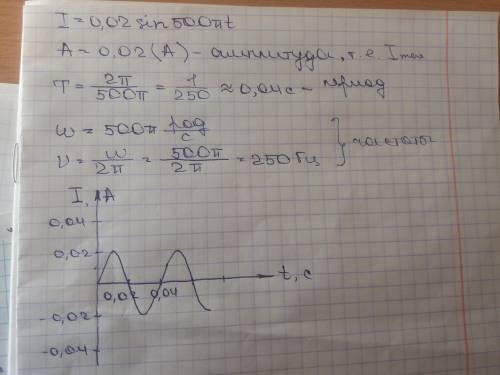 I = 0,02 sin 500πt
A = 0,02 (А) - амплитуда, т.е. Imax
T = 2π/500π = 1/250 ≈ 0,04 с - период
ω = 500π рад/с
ν = ω/2π = 500π/2π = 250 Гц } частоты
I, А
0,04
0,02
0,02 0,04 t, с
-0,02
-0,04